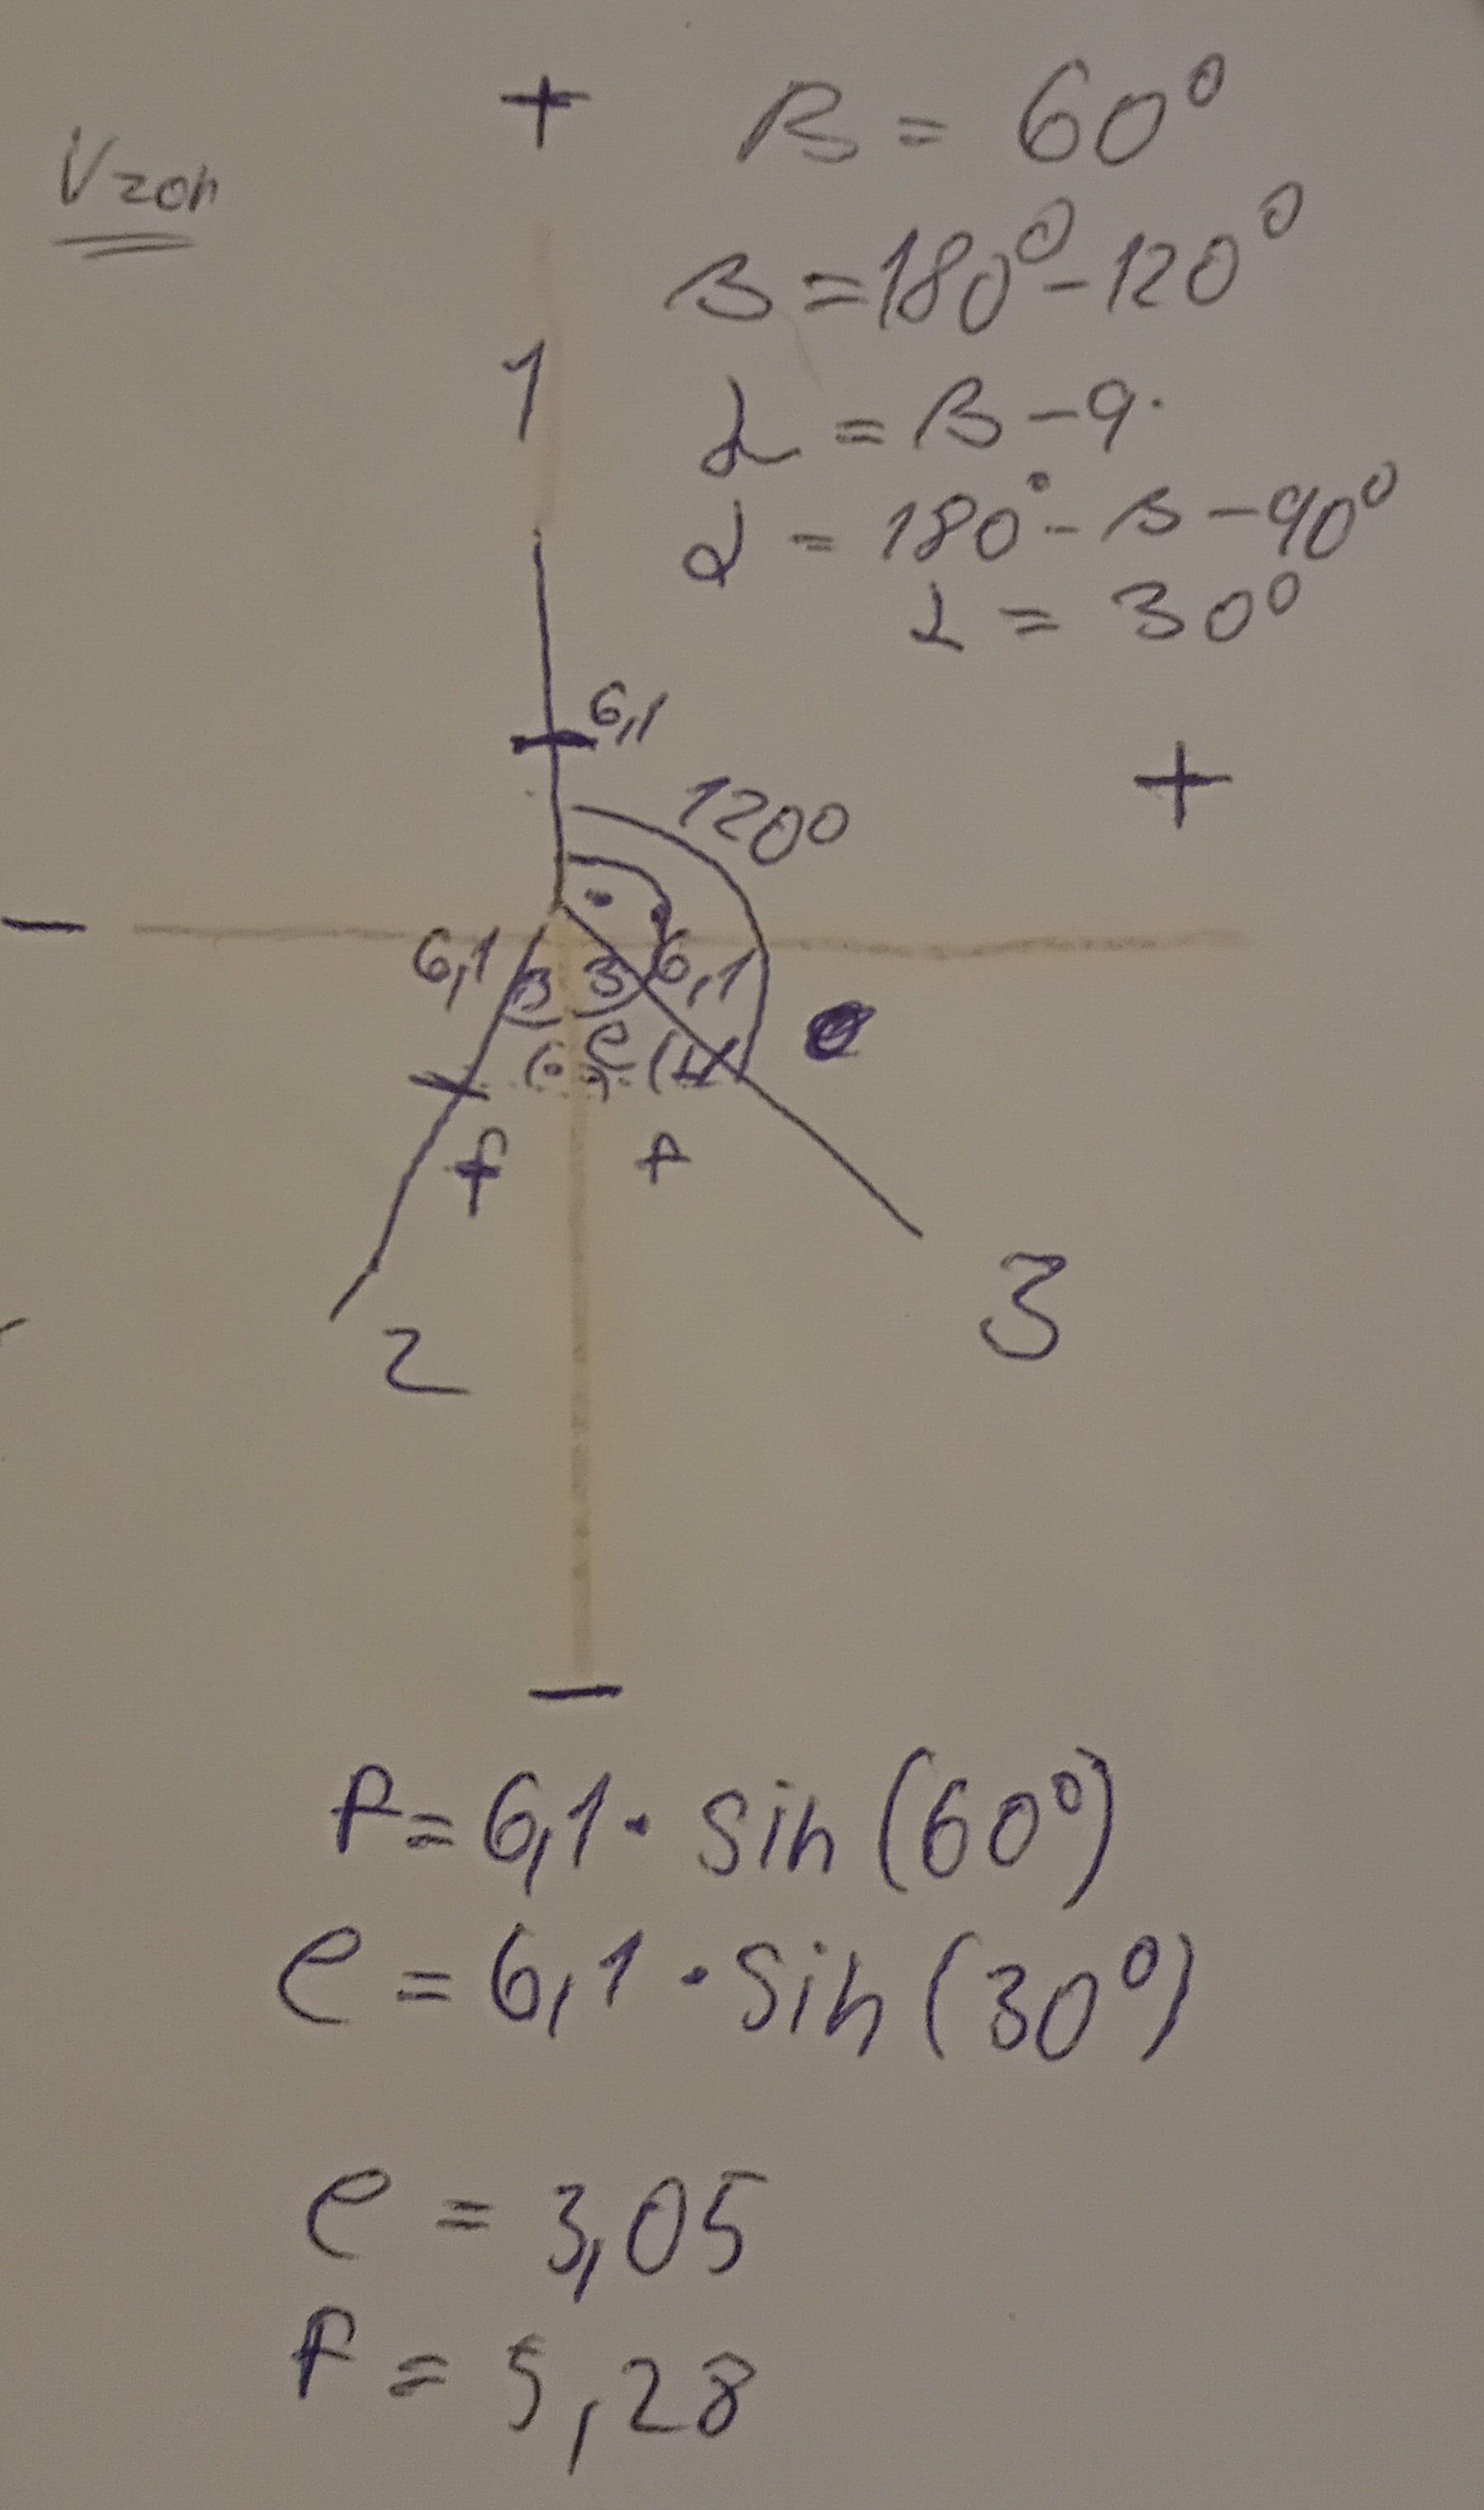 Vzor
+
β = 60°
β = 180° - 120°
α = β - 9.
α = 180° - β - 90°
α = 30°
1
6,1
120°
+
-
6,1
β β
6,1
e
α
f f
2
3
-
f = 6,1 · sin (60°)
e = 6,1 · sin (30°)
e = 3,05
f = 5,28